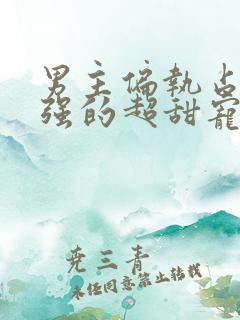 男主偏执占
强的超甜宠
尧三青
未经同意禁止转载